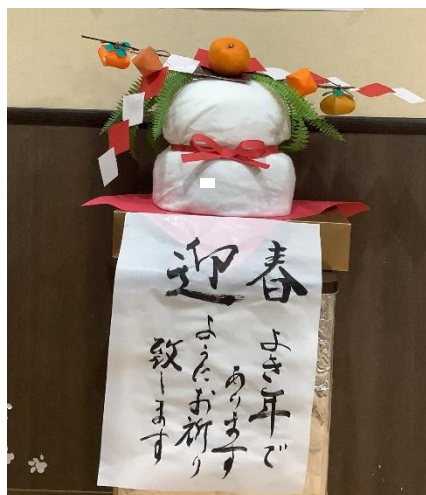 迎春
よき年で
あります
ようにお祈り
致します